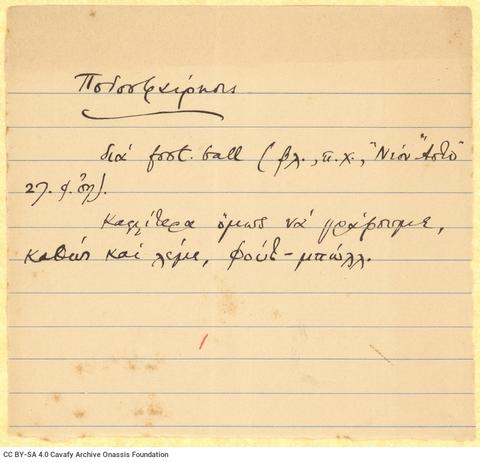 Ποδοσφαίρησις
διά foot-ball (βλ., π.χ., "Νέον Άστυ"
27.
Καλλίτερα όμως νά γράφουμε,
καθώς καί λέμε, φούτ-μπώλλ.
CC BY-SA 4.0 Cavafy Archive Onassis Foundation